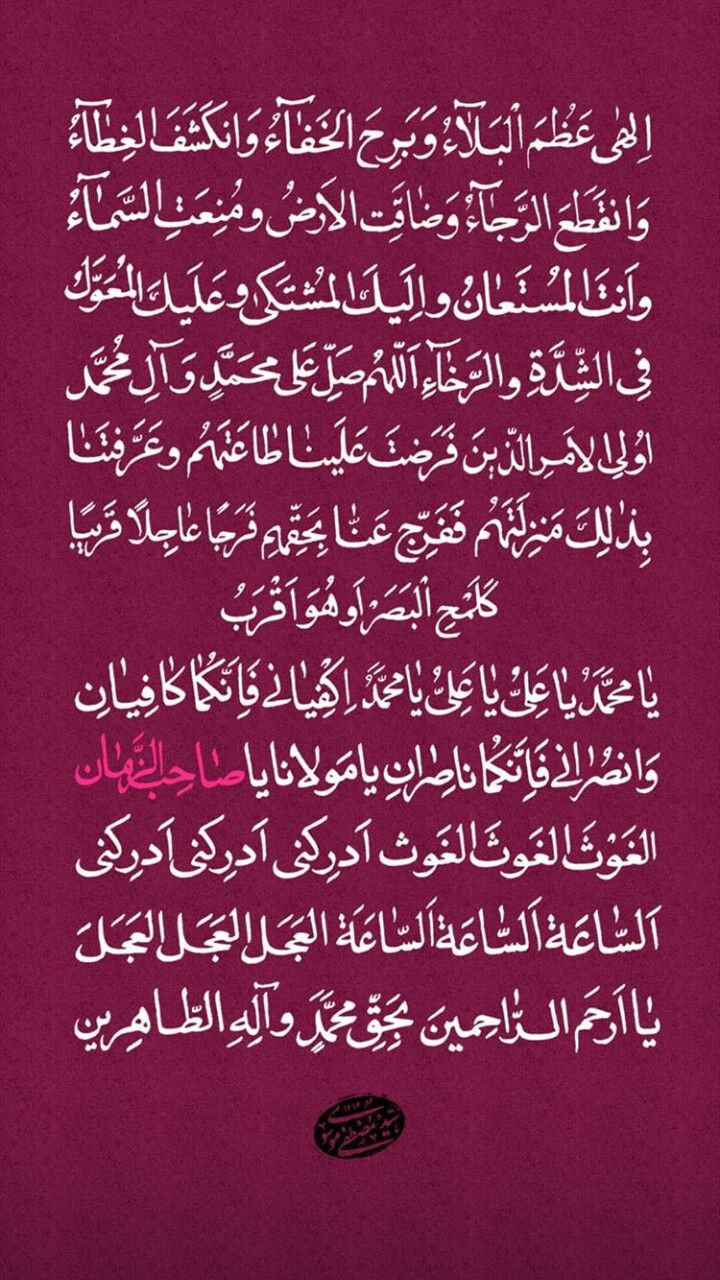 اِلهٰی عَظُمَ الْبَلاٰۤءُ وَبَرِحَ الخَفاٰۤءُ وَانکَشَفَ الغِطاٰۤءُ
وَانقَطَعَ الرَّجاٰۤءُ وَضاٰقَتِ الاَرضُ ومُنِعَتِ السَّماٰۤءُ
واَنتَ المُستَعاٰنُ واِلَیكَ المُشتَکیٰ وعَلَیكَ المُعَوَّلُ
فِی الشِّدَّةِ والرَّخاٰۤءِ اَللّٰهُم صَلِّ عَلی محمَدٍَّ وَآلِ مُحَمَّد
اوُلِی الاَمرِ الَّذینَ فَرَضتَ عَلَیناٰ طاٰعَتَهُم وعَرَّفتَناٰ
بِذٰلِكَ مَنزِلَتَهُم فَفَرِّج عَنّاٰ بِحَقِّهِم فَرَجًا عاٰجِلاً قَریبًا
کَلَمْحِ الْبَصَرْ اَو هُوَ اَقْرَبُ
یاٰ محَمَّدُ یاٰ عَلِیُّ یاٰ عَلِیُّ یاٰ محَمَّدُ اِکْفِیاٰنی فَاِنَّکُماٰ کاٰفِیاٰنِ
وَانصُراٰنی فَاِنَّکُماٰ ناصِراٰنِ یا مَولانا یا صاٰحِبَ الزَّماٰن
الغَوْثَ الغَوثَ الغَوث اَدرِکنی اَدرِکنی اَدرِکنی
اَلسّاٰعَةَ اَلسّاٰعَةَ اَلسّاٰعَة العَجَلَ العَجَلَ العَجَلَ
یاٰ اَرحَم الرّاٰحِمینَ بِحَقِّ محَمَّدٍ وآلِهِ الطّاٰهِرینِ
سید مصطفی موسوی